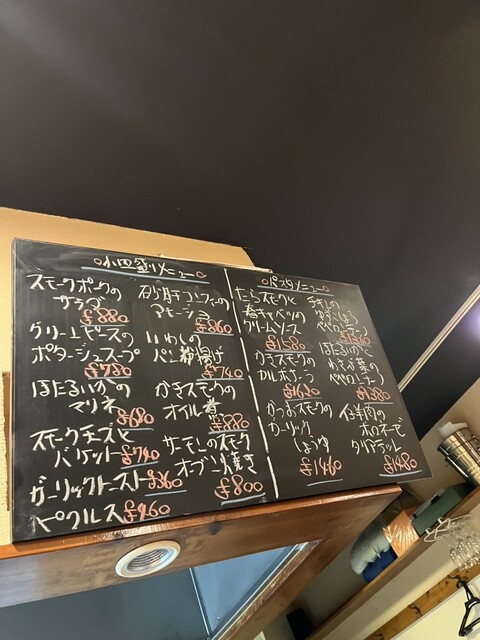 小皿盛りメニュー
スモークポークの
サラダ
¥880
グリーンピースの
ポタージュスープ
¥780
ほたるいかの
マリネ
¥680
スモークチーズと
バケット ¥740
ガーリックトースト ¥360
ピクルス ¥460
砂肝コンフィーの
アヒージョ
¥860
いわしの
パン粉揚げ
¥740
かきスモークの
オイル煮
¥880
サーモンのスモーク
オーブン焼き
¥800
パスタメニュー
たらスモークと
春キャベツの
クリームソース
¥1580
かきスモークの
カルボナーラ
¥1620
かつおスモークの
ガーリック
しょうゆ
¥1460
ゆずこしょう
ペペロンチーノ
ほたるいかと
わさび葉の
ペペロンチーノ
¥1380
仔羊肉の
ボロネーゼ
タリアテッレ
¥1480